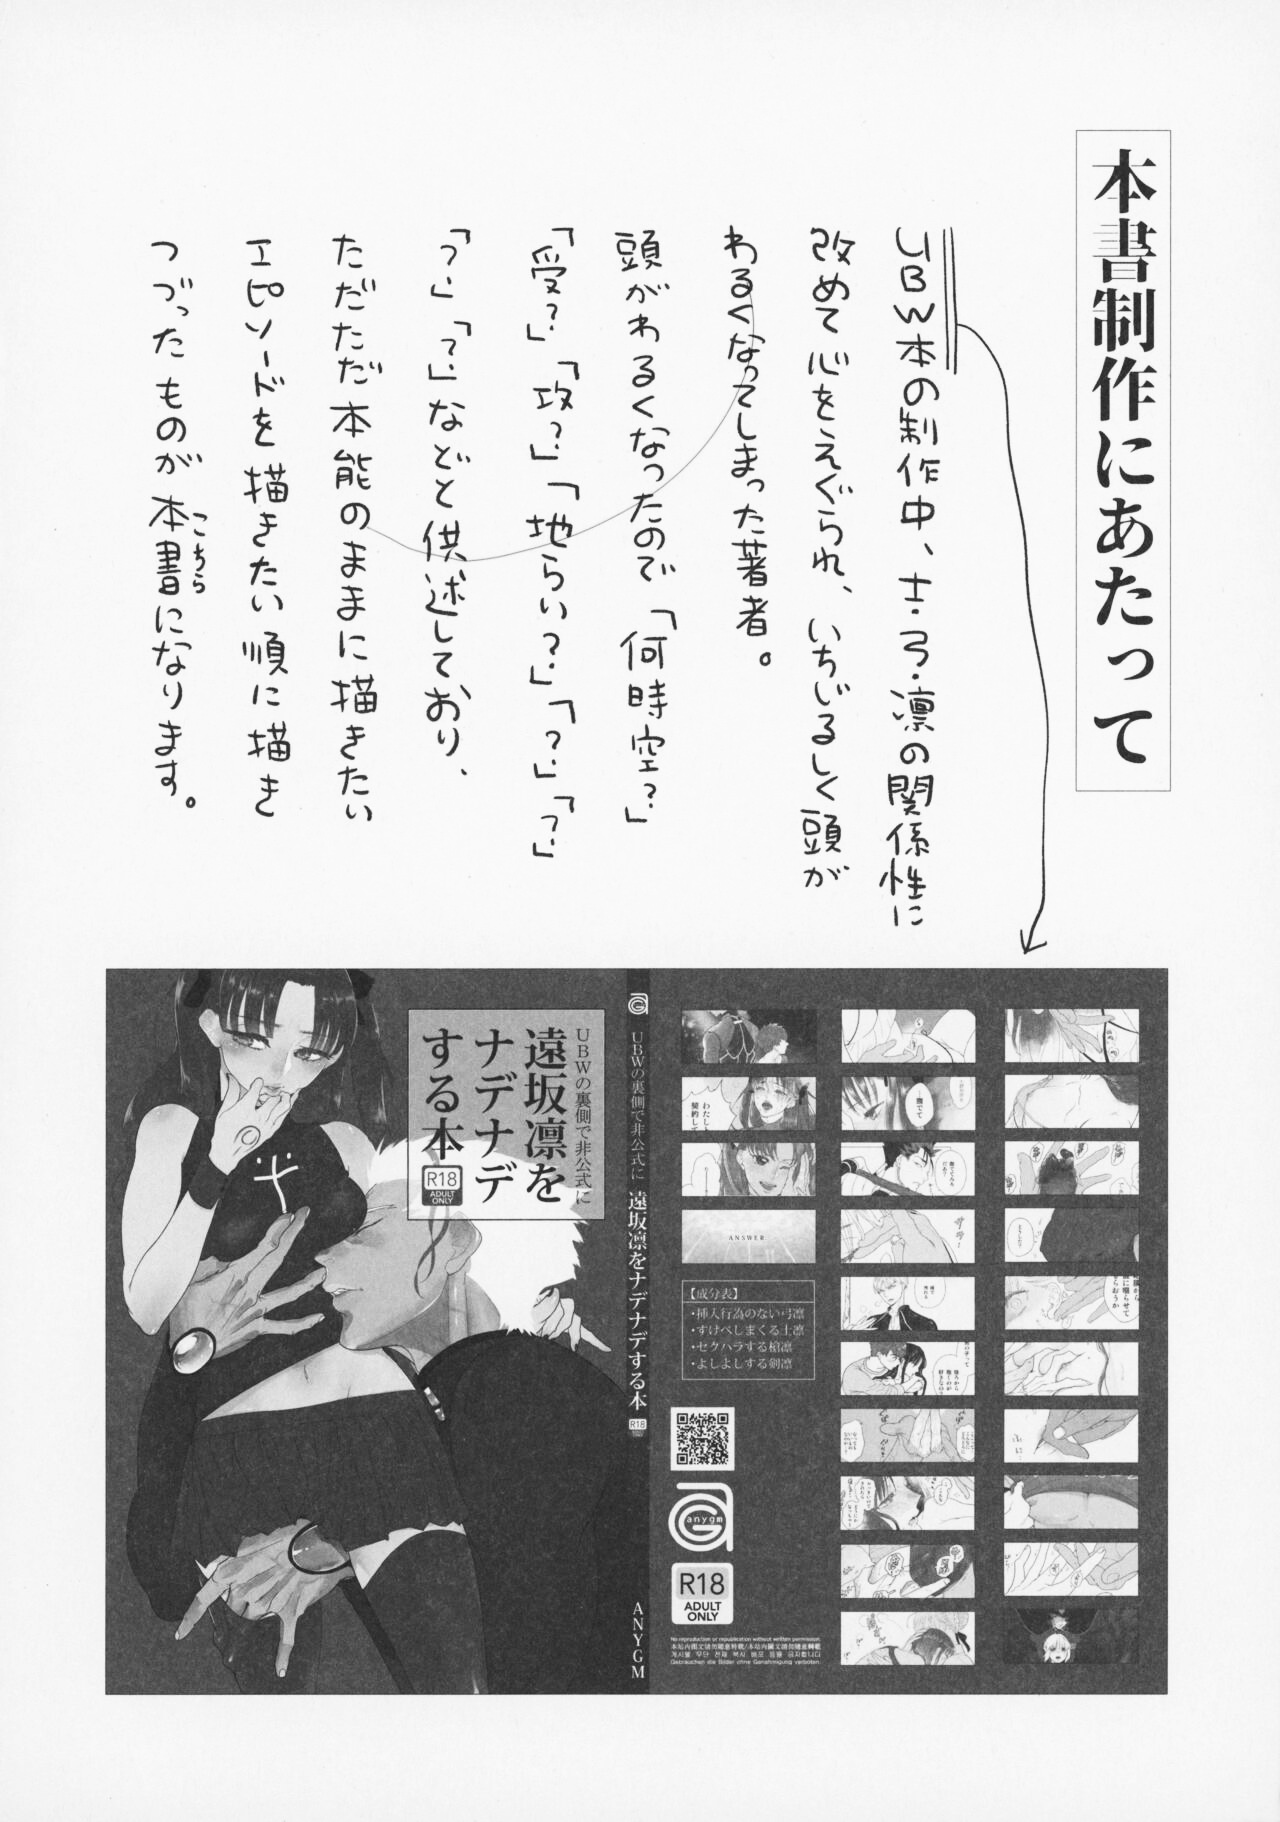 本書制作にあたって
UBW本の制作中、士・弓・凛の関係性に
改めて心をえぐられ、いちじるしく頭が
わるくなってしまった著者。
頭がわるくなったので「何時空?」
「受?」「攻?」「地らい?」「?」「?」
「?」「?」などと供述しており、
ただただ本能のままに描きたい
エピソードを描きたい順に描き
つづったものが本書になります。
こちら
UBWの裏側で非公式に
遠坂凛を
ナデナデ
する本
R18
ADULT
ONLY
UBWの裏側で非公式に 遠坂凛をナデナデする本
R18
ANYGM
わたしと
契約して
ANSWER
【成分表】
・挿入行為のない弓凛
・すけべしまくる士凛
・セクハラする槍凛
・よしよしする剣凛
anygm
R18
ADULT
ONLY
No reproduction or republication without written permission.
本站内图文请勿随意转载/本站內圖文請勿隨意轉載
게시물 무단 전재 복사 배포 등을 금지합니다
Gebrauchen die Bilder ohne Genehmigung verboten.